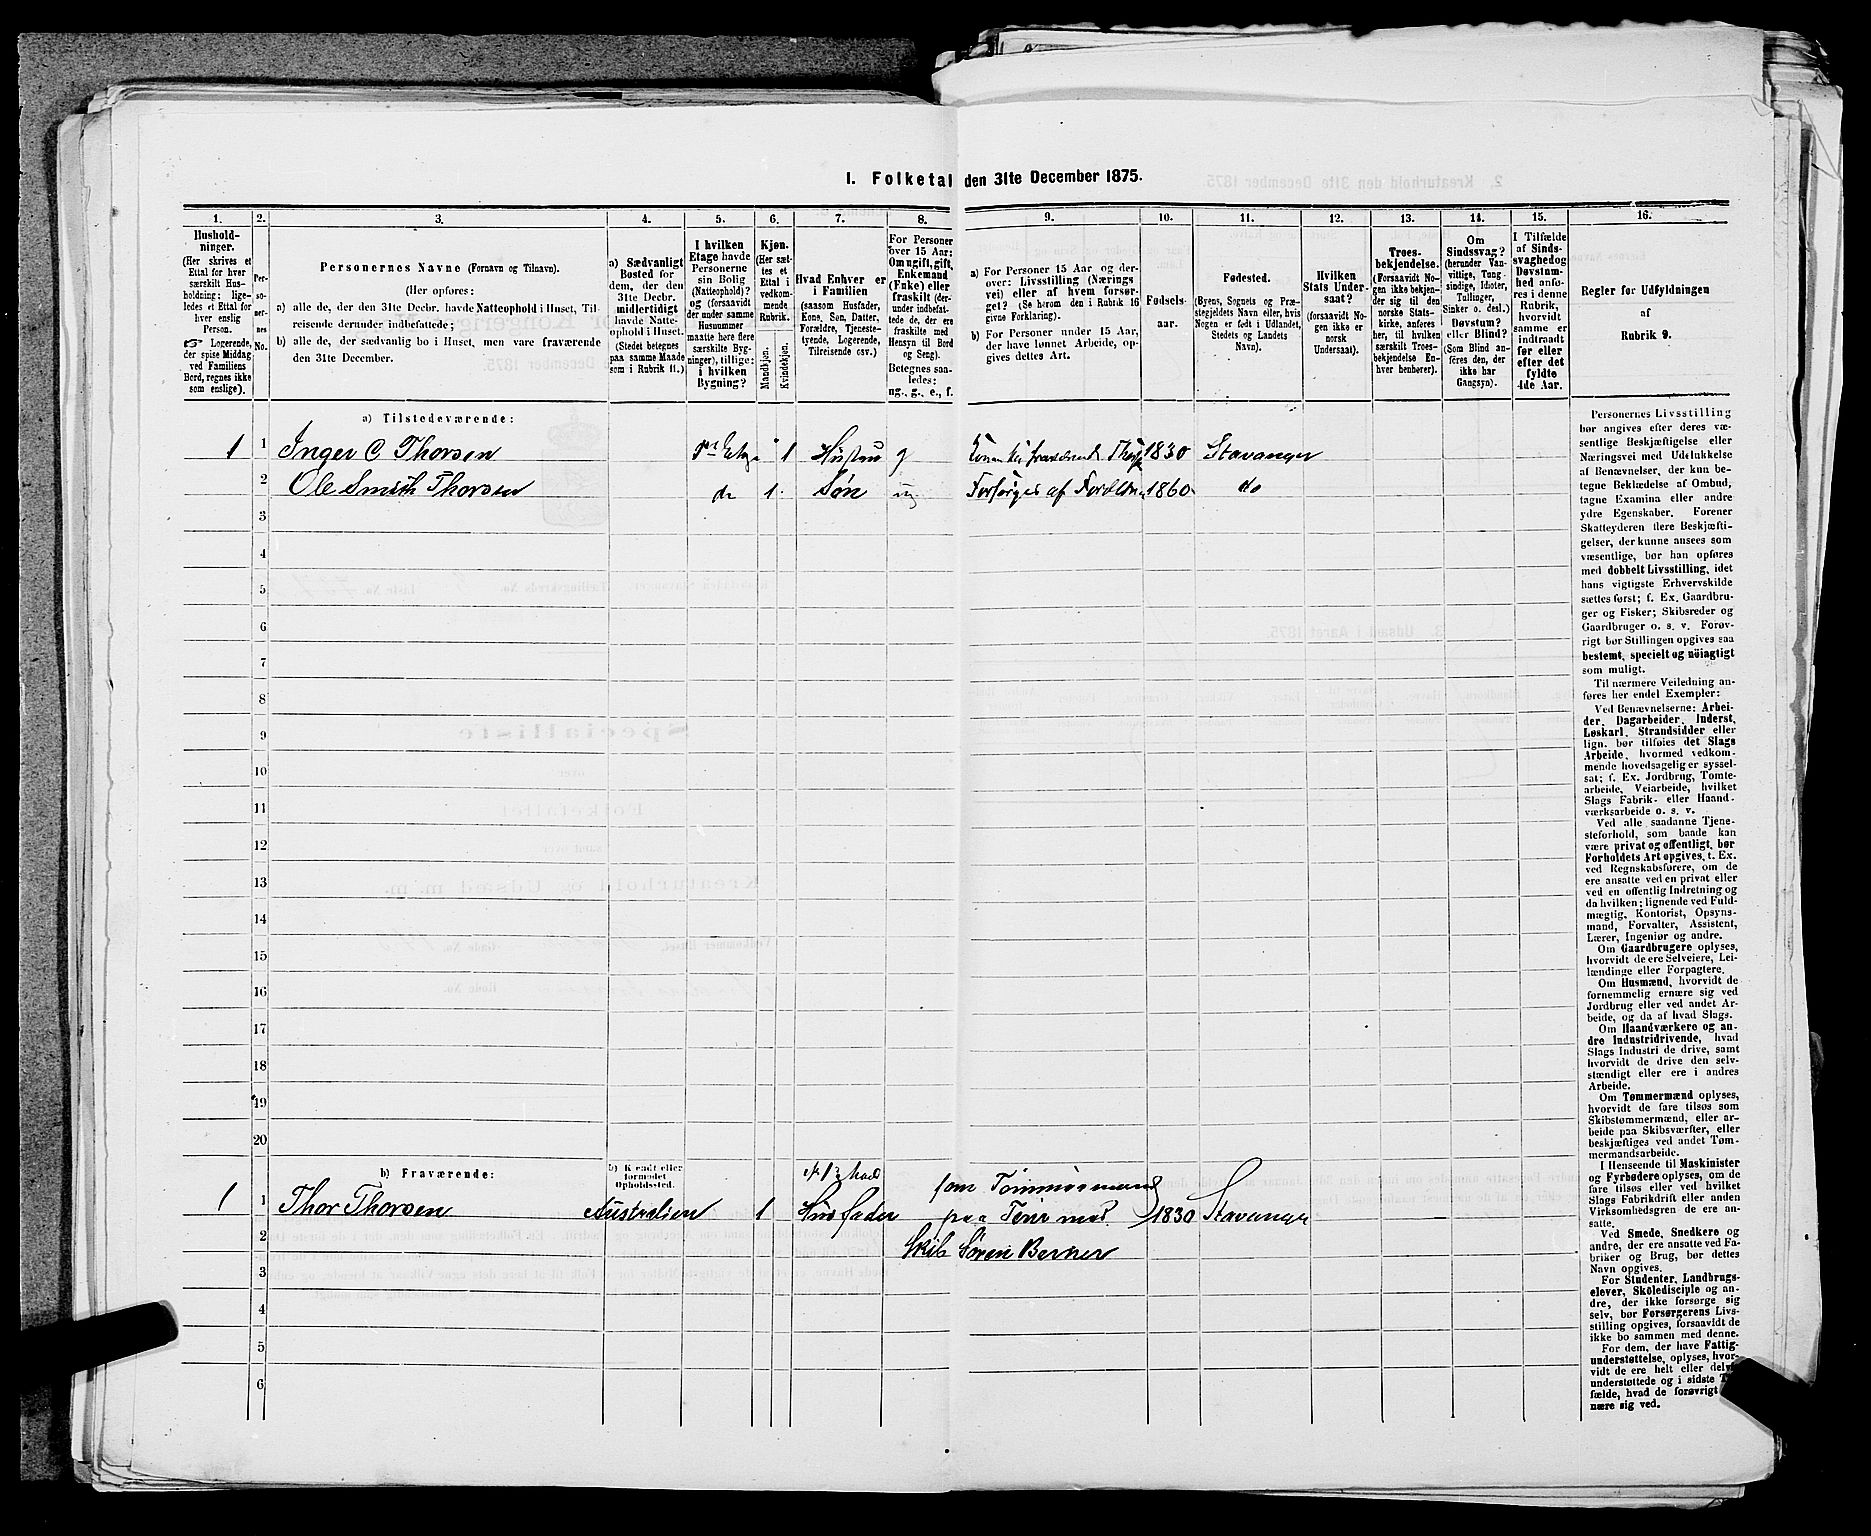 I. Folketal den 31te December 1875.
1. 2. 3. 4. 5. 6. 7. 8. 9. 10. 11. 12. 13. 14. 15. 16.
Hushold-
ninger.
(Her skrives et
Ettal for hver
særskilt Hus-
holdning; lige-
ledes et Ettal for
hver enslig
Person.
☞ Logerende,
der spise Middag
ved Familiens
Bord, regnes ikke
som enslige).
Per-
so-
ner-
nes
No.
Personernes Navne (Fornavn og Tilnavn).
(Her opføres:
a) alle de, der den 31te Decbr. havde Natteophold i Huset, Til-
reisende derunder indbefattede;
b) alle de, der sædvanlig bo i Huset, men vare fraværende
den 31te December.
a) Sædvanligt
Bosted for
dem, der den
31te Decbr.
midlertidigt
havde Natte-
ophold i Huset.
(Stedet betegnes
paa samme Maade
som i Rubrik 11.)
I hvilken
Etage havde
Personerne
sin Bolig
(Natteophold)?
og (forsaavidt
der under samme
Husnummer
maatte høre flere
særskilte Byg-
ninger), tillige:
i hvilken
Bygning?
Kjøn.
(Her sæt-
tes et
Ettal i
vedkom-
mende
Rubrik.
Mandkjøn.
Kvindekjøn.
Hvad Enhver er
i Familien
(saasom Husfader,
Kone, Søn, Datter,
Forældre, Tjeneste-
tyende, Logerende,
Tilreisende osv.)
For Personer
over 15 Aar:
Om ugift, gift,
Enkemand
(Enke) eller
fraskilt (der-
under indbefat-
tede de, der ere
fraskilte med
Hensyn til Bord
og Seng).
Betegnes saa-
ledes:
ug., g., e., f.
a) For Personer 15 Aar og der-
over: Livsstilling (Nærings
vei) eller af hvem forsør-
get? (Se herom den i Rubrik 16
givne Forklaring).
b) For Personer under 15 Aar,
der have lønnet Arbeide, op-
gives dettes Art.
Fødsels-
aar.
Fødested.
(Byens, Sognets og Præ-
stegjeldets Navn eller, hvis
Nogen er født i Udlandet,
Stedets og Landets
Navn).
Hvilken
Stats Under-
saat?
(forsaavidt No-
gen ikke er
norsk
Undersaat).
Troes-
bekjendelse.
(Forsaavidt No-
gen ikke bekjen-
der sig til den
norske Stats-
kirke, anføres
her, til hvilken
særskilt Troes-
bekjendelse En-
hver henhører).
Om
Sindssvag?
(herunder Van-
vittige, Tung-
sindige, Idioter,
Tullinger,
Sinker o. desl.)
Døvstum?
eller Blind?
(Som Blind an-
føres den, der
ikke har
Gangsyn).
I Tilfælde
af Sinds-
svaghed og
Døvstum-
hed anfø-
res i denne
Rubrik,
hvorvidt
samme er
indtraadt
før eller
efter det
fyldte
4de Aar.
Regler for Udfyldningen
af
Rubrik 9.
a) Tilstedeværende:
1 1 Inger C Thorsen 1 Hustru g 1830 Stavanger
2 Ole Smith Thorsen do 1 Søn ug Forsørges af 1860 do
3
4
5
6
7
8
9
10
11
12
13
14
15
16
17
18
19
20
b) Fraværende:
b) Kjendt eller
formodet
Opholdssted.
1 1 Thor Thorsen Australien 1 Husfader som Tømmermand
paa med 1830 Stavanger
2 Skib Søren Berner
3
4
5
6
Personernes Livsstilling
bør angives efter deres væ-
sentlige Beskjæftigelse eller
Næringsvei med Udelukkelse
af Benævnelser, der kun be-
tegne Beklædelse af Ombud,
tagne Examina eller andre
ydre Egenskaber. Forener
Skatteyderen flere Beskjæfti-
gelser, der kunne ansees som
væsentlige, bør han opføres
med dobbelt Livsstilling, idet
hans vigtigste Erhvervskilde
sættes først; f. Ex. Gaardbru-
ger og Fisker; Skibsreder og
Gaardbruger o. s. v. Forøv-
rigt bør Stillingen opgives saa
bestemt, specielt og nöiagtigt
som muligt.
Til nærmere Veiledning an-
føres her endel Exempler:
Ved Benævnelserne: Arbei-
der, Dagarbeider, Inderst,
Løskarl, Strandsidder eller
lign. bør tilføies det Slags
Arbeide, hvormed vedkom-
mende hovedsagelig er syssel-
sat; f. Ex. Jordbrug, Tomte-
arbeide, Veiarbeide, hvilket
Slags Fabrik- eller Haand-
værksarbeide o. s. v.
Ved alle saadanne Tjene-
steforhold, som baade kan
være privat og offentligt, bør
Forholdets Art opgives, t. Ex.
ved Regnskabsførere, om de
ere ansatte ved en privat eller
ved en offentlig Indretning og
da hvilken; lignende ved Fuld-
mægtig, Kontorist, Opsyns-
mand, Forvalter, Assistent,
Lærer, Ingeniør og andre.
Om Gaardbrugere oplyses,
hvorvidt de ere Selveiere, Lei-
lændinge eller Forpagtere.
Om Husmænd, hvorvidt de
fornemmelig ernære sig ved
Jordbrug eller ved andet Ar-
beide, og da af hvad Slags.
Om Haandværkere og an-
dre Industridrivende, hvad
Slags Industri de drive, samt
hvorvidt de drive den selv-
stændigt eller ere i andres
Arbeide.
Om Tømmermænd oplyses,
hvorvidt de fare tilsøs som
Skibstømmermænd, eller ar-
beide paa Skibsværfter, eller
beskjæftiges ved andet Tøm-
mermandsarbeide.
I Henseende til Maskinister
og Fyrbødere oplyses, om de
fare tilsøs eller ved hvilket
Slags Fabrikdrift eller anden
Virksomhedsgren de ere an-
satte.
Ved Smede, Snedkere og
andre, der ere ansatte ved Fa-
briker og Brug, bør dettes
Navn opgives.
For Studenter, Landbrugs-
elever, Skoledisciple og an-
dre, der ikke forsørge sig
selv, bør Forsørgerens Livs-
stilling opgives, forsaavidt de
ikke bo sammen med denne.
For dem, der have Fattig-
understøttelse, oplyses, hvor-
vidt de ere helt eller
understøttede og i sidste
fælde, hvad de forøvrigt
nære sig ved.